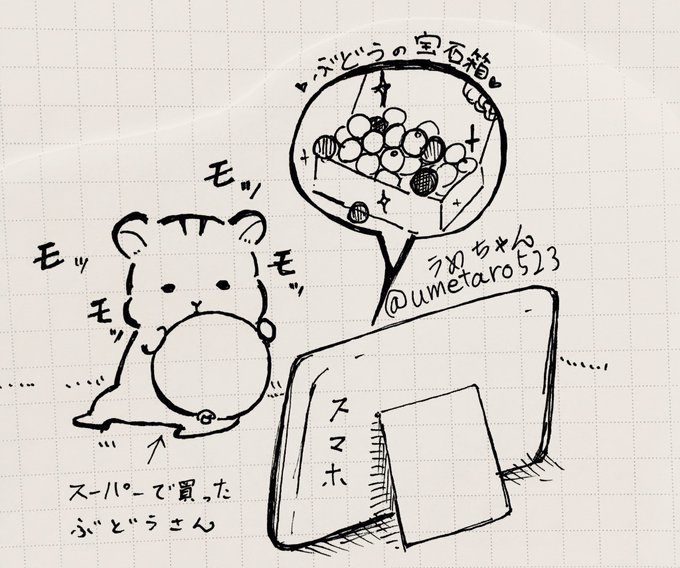 ♥ぶどうの宝石箱♥
モッ
モッ
モッ
モッ
うめちゃん
@umetaro523
スマホ
スーパーで買った
ぶどうさん